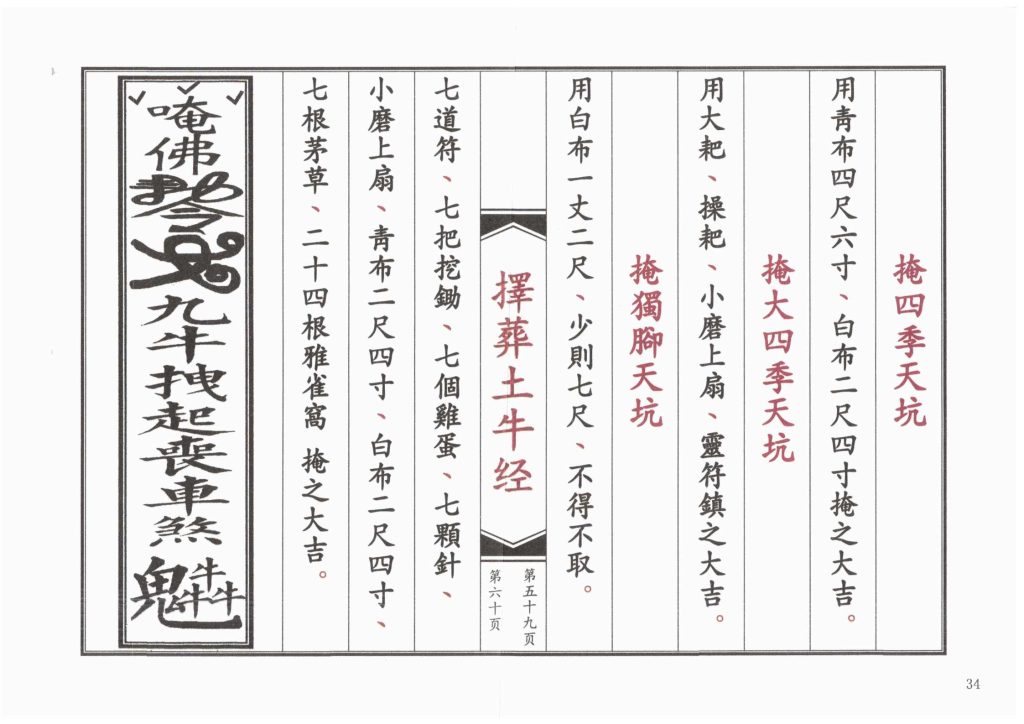 掩四季天坑
用青布四尺六寸、白布二尺四寸掩之大吉。
掩大四季天坑
用大耙、操耙、小磨上扇、靈符鎮之大吉。
掩獨腳天坑
用白布一丈二尺、少則七尺、不得不取。
擇葬土牛经
第五十九页
第六十页
七道符、七把挖鋤、七個雞蛋、七顆針、
小磨上扇、青布二尺四寸、白布二尺四寸、
七根茅草、二十四根雅雀窩 掩之大吉。
唵佛
九牛拽起喪車煞
34